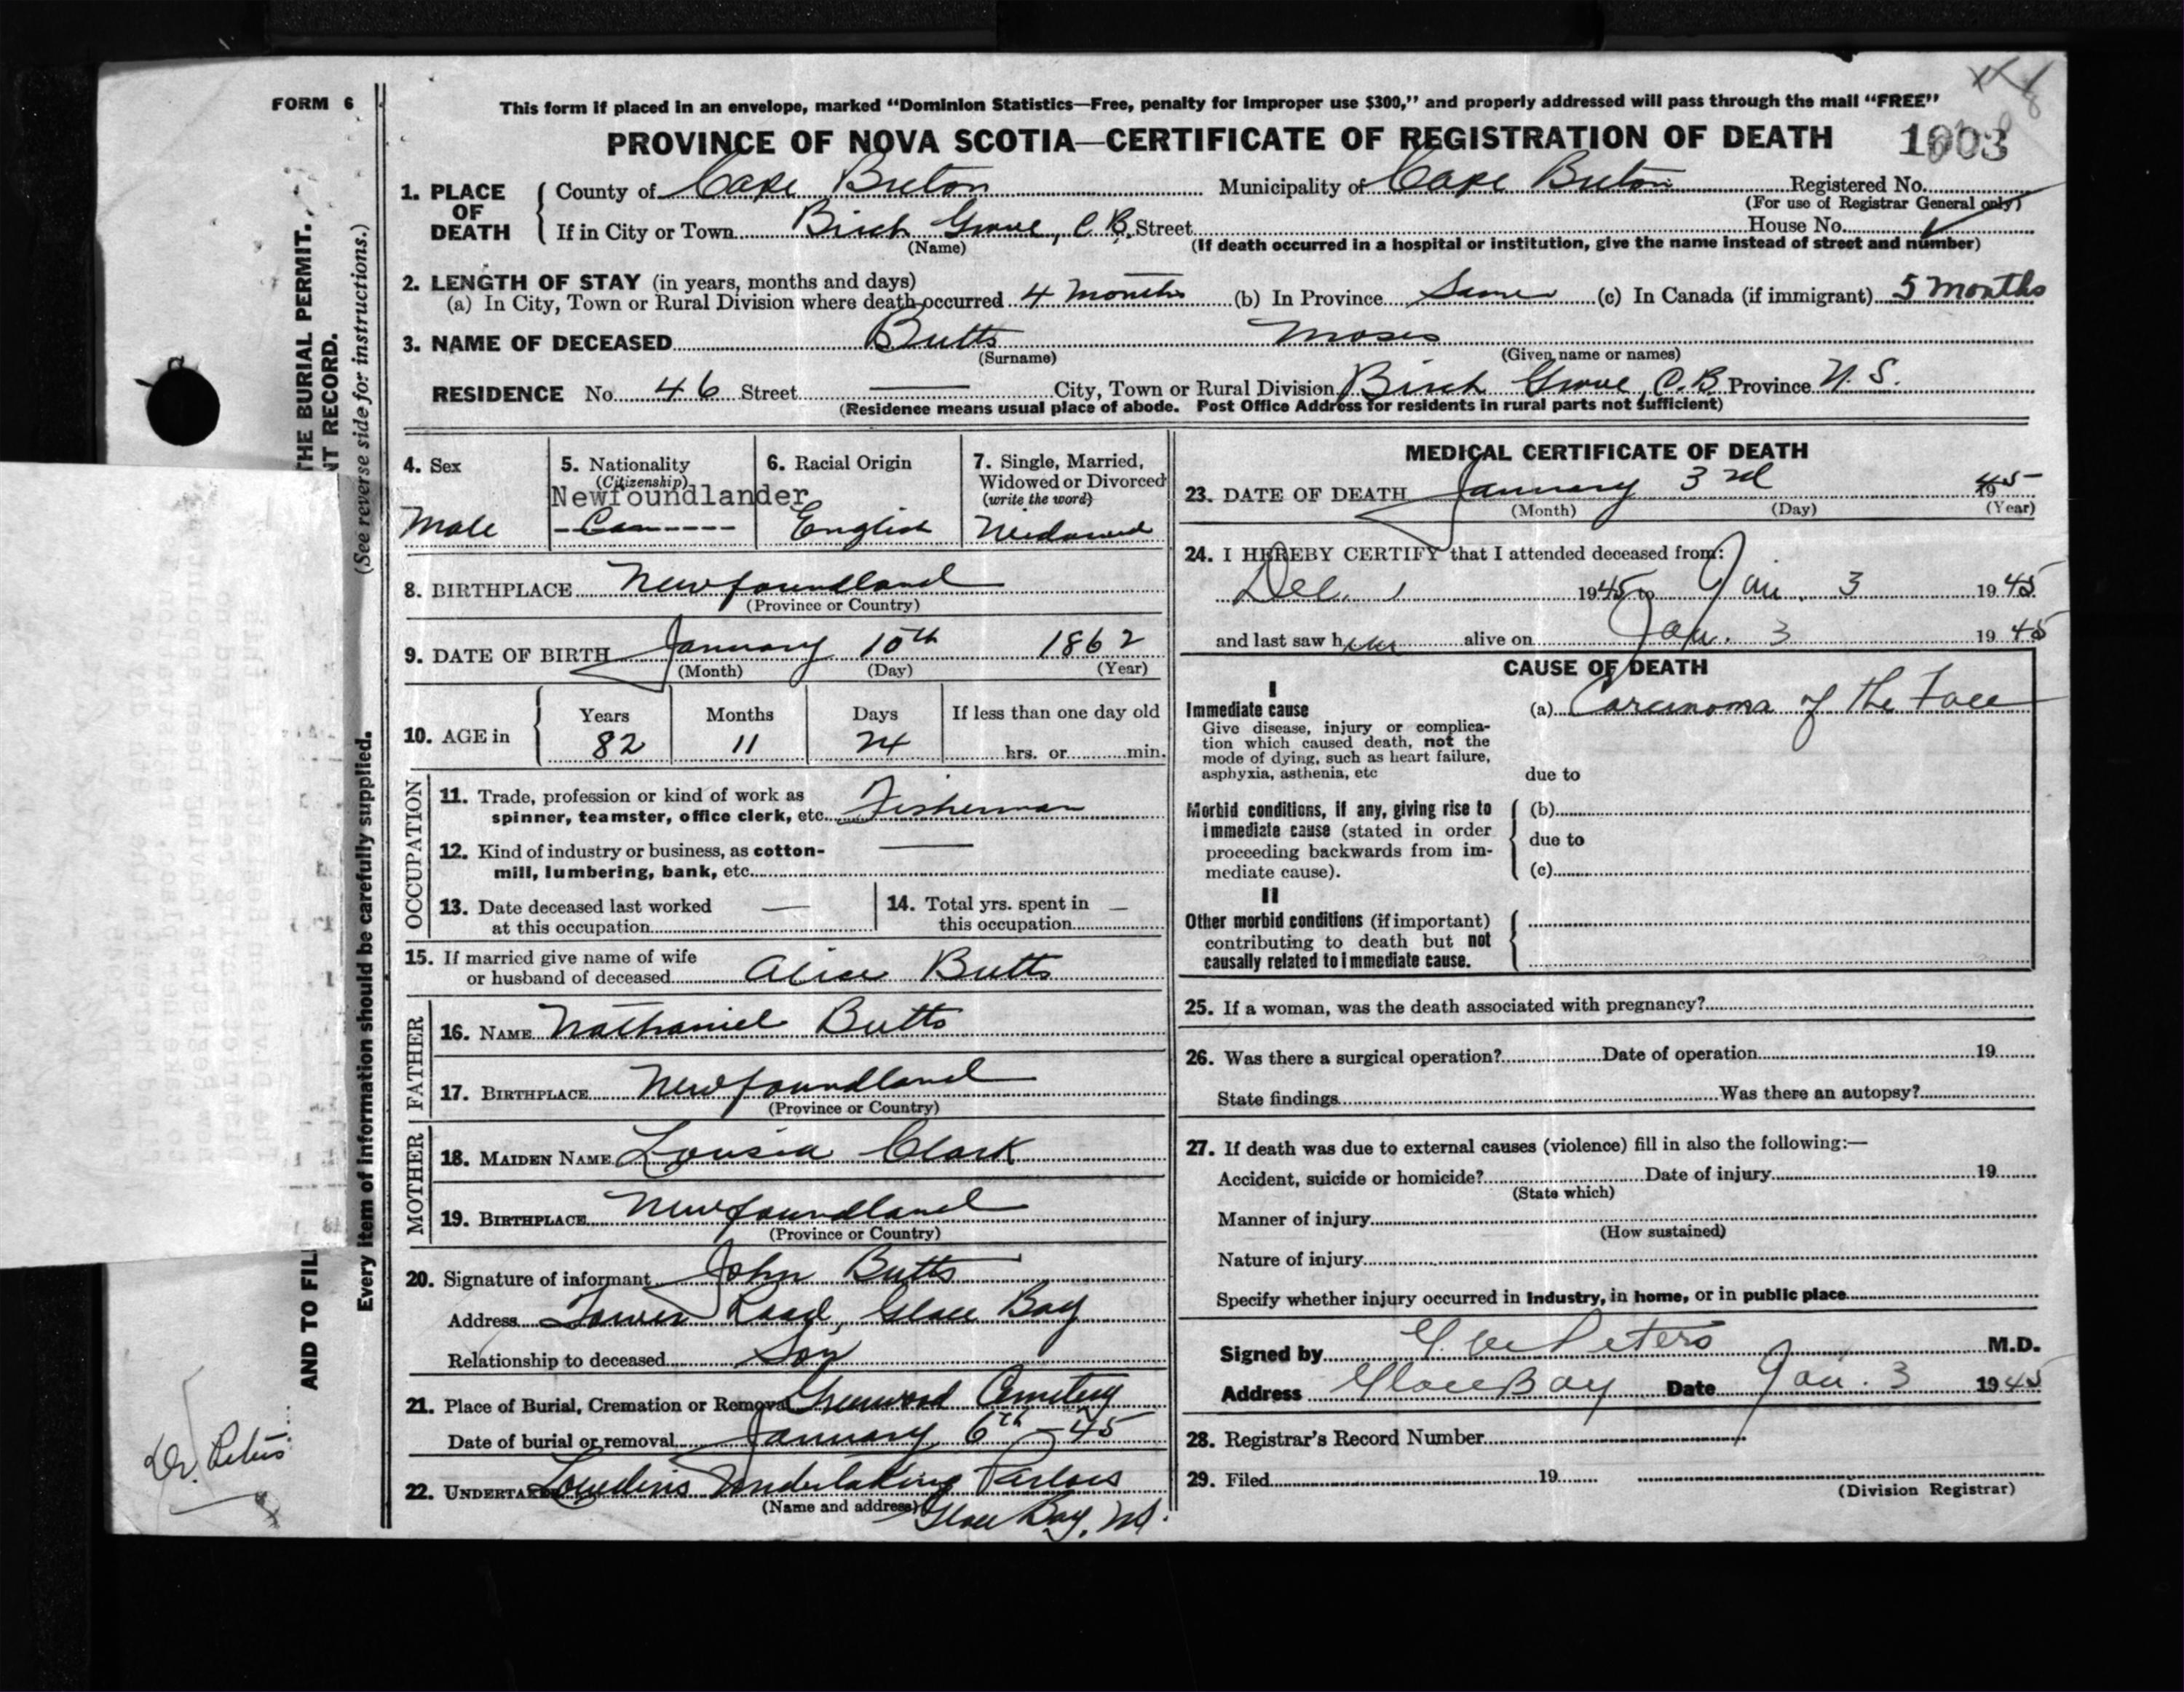 FORM 6
This form if placed in an envelope, marked “Dominion Statistics—Free, penalty for improper use $300,” and properly addressed will pass through the mail “FREE”
PROVINCE OF NOVA SCOTIA—CERTIFICATE OF REGISTRATION OF DEATH
1003
1. PLACE OF DEATH
County of Cape Breton Municipality of Cape Breton Registered No.
(For use of Registrar General only)
If in City or Town Birch Grove, C.B. Street House No.
(Name) (If death occurred in a hospital or institution, give the name instead of street and number)
2. LENGTH OF STAY (in years, months and days)
(a) In City, Town or Rural Division where death occurred 4 months (b) In Province Same (c) In Canada (if immigrant) 5 months
3. NAME OF DECEASED Butts Moses
(Surname) (Given name or names)
RESIDENCE No. 46 Street City, Town or Rural Division Birch Grove, C.B. Province N. S.
(Residence means usual place of abode. Post Office Address for residents in rural parts not sufficient)
4. Sex
Male
5. Nationality
(Citizenship)
Newfoundlander
Can
6. Racial Origin
English
7. Single, Married,
Widowed or Divorced
(write the word)
Widowed
8. BIRTHPLACE Newfoundland
(Province or Country)
9. DATE OF BIRTH January 10th 1862
(Month) (Day) (Year)
10. AGE in
Years Months Days If less than one day old
82 11 24 hrs. or min.
OCCUPATION
11. Trade, profession or kind of work as
spinner, teamster, office clerk, etc. Fisherman
12. Kind of industry or business, as cotton-
mill, lumbering, bank, etc. —
13. Date deceased last worked
at this occupation —
14. Total yrs. spent in
this occupation —
15. If married give name of wife
or husband of deceased Alice Butts
FATHER
16. NAME Nathaniel Butts
17. BIRTHPLACE Newfoundland
(Province or Country)
MOTHER
18. MAIDEN NAME Lousia Clark
19. BIRTHPLACE Newfoundland
(Province or Country)
20. Signature of informant John Butts
Address Tower Road, Glace Bay
Relationship to deceased Son
21. Place of Burial, Cremation or Removal Greenwood Cemetery
Date of burial or removal January 6th - 45
22. UNDERTAKER Undertaking Parlors
(Name and address) Glace Bay, N.S.
MEDICAL CERTIFICATE OF DEATH
23. DATE OF DEATH January 3rd 1945
(Month) (Day) (Year)
24. I HEREBY CERTIFY that I attended deceased from:
Dec. 1 1945 to Jan. 3 1945
and last saw him alive on Jan. 3 1945
CAUSE OF DEATH
I
Immediate cause
Give disease, injury or complica-
tion which caused death, not the
mode of dying, such as heart failure,
asphyxia, asthenia, etc
(a) Carcinoma of the Face
due to
Morbid conditions, if any, giving rise to
immediate cause (stated in order
proceeding backwards from im-
mediate cause).
(b)
due to
(c)
II
Other morbid conditions (if important)
contributing to death but not
causally related to immediate cause.
25. If a woman, was the death associated with pregnancy?
26. Was there a surgical operation? Date of operation 19
State findings Was there an autopsy?
27. If death was due to external causes (violence) fill in also the following:—
Accident, suicide or homicide? Date of injury 19
(State which)
Manner of injury
(How sustained)
Nature of injury
Specify whether injury occurred in industry, in home, or in public place
Signed by Peters M.D.
Address Glace Bay Date Jan. 3 1945
28. Registrar's Record Number
29. Filed 19
(Division Registrar)
THE BURIAL PERMIT.
NT RECORD.
(See reverse side for instructions.)
AND TO FIL
Every item of information should be carefully supplied.
Dr. Peters